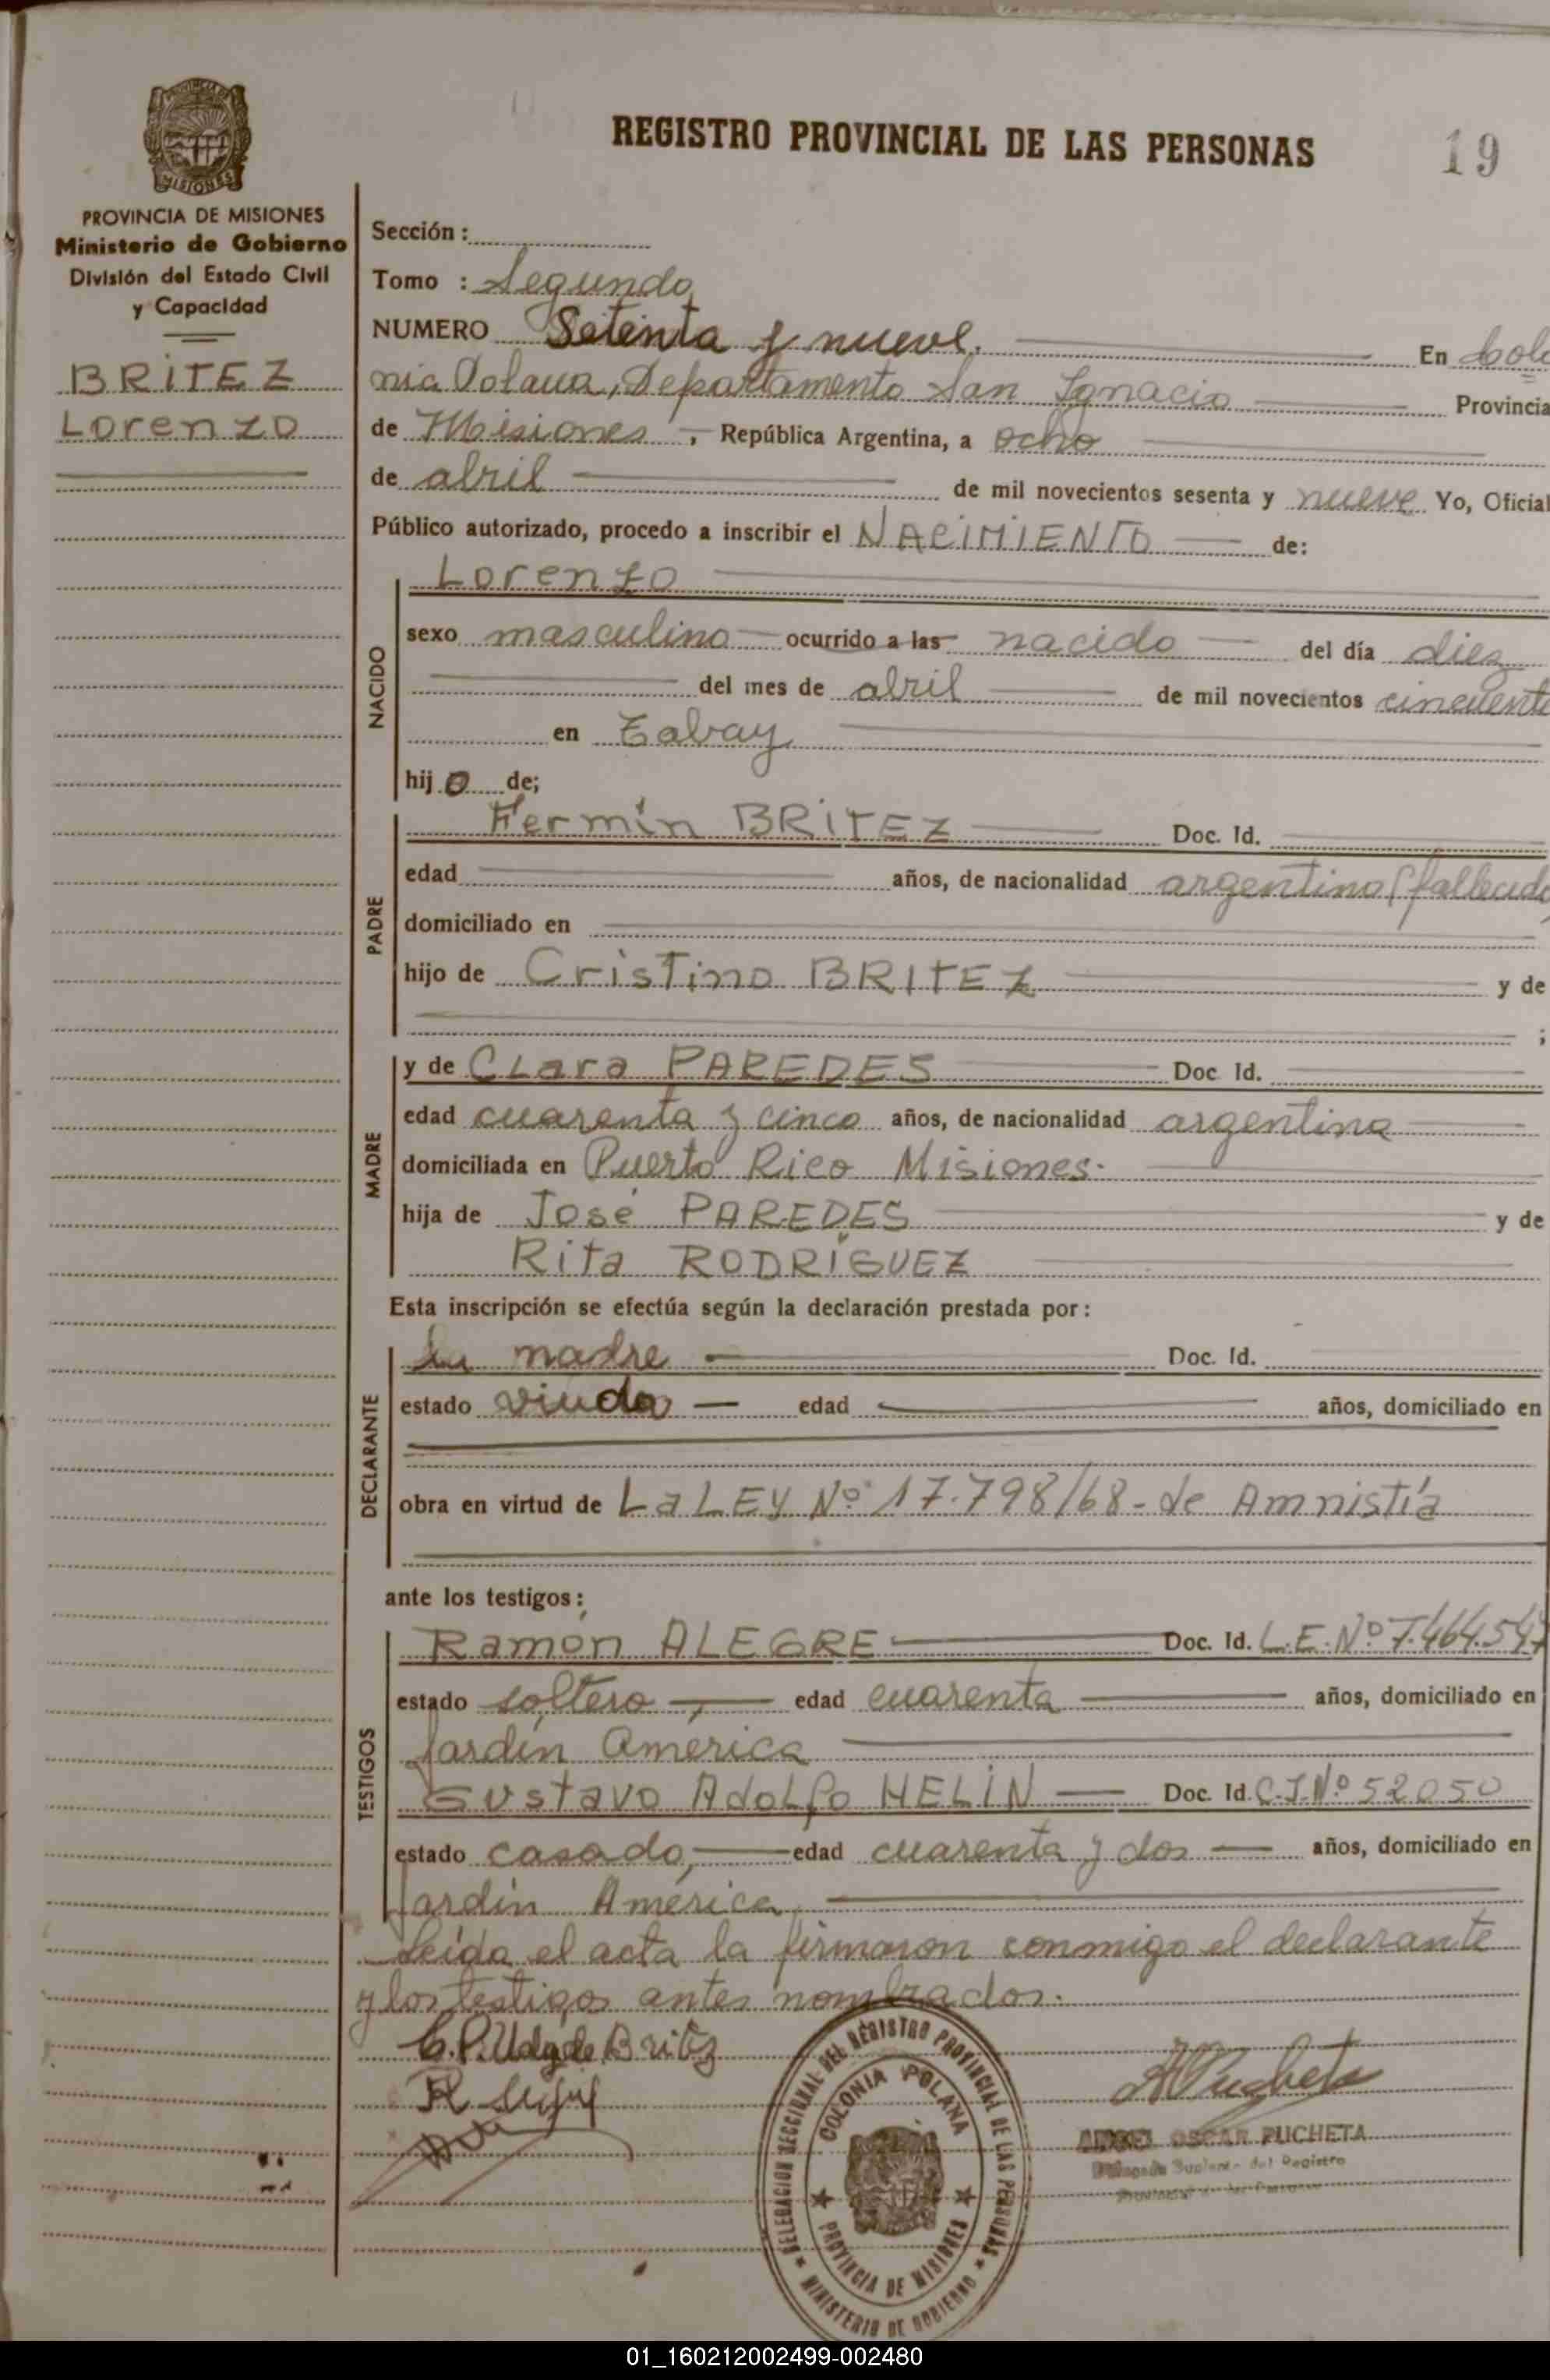 REGISTRO PROVINCIAL DE LAS PERSONAS 19
MISIONES
PROVINCIA DE MISIONES
Ministerio de Gobierno
División del Estado Civil
y Capacidad
BRITEZ
Lorenzo
Sección :
Tomo : Segundo
NUMERO Setenta y nueve. En Colo
nia Polana, Departamento San Ignacio Provincia
de Misiones, República Argentina, a ocho
de abril de mil novecientos sesenta y nueve Yo, Oficial
Público autorizado, procedo a inscribir el NACIMIENTO de:
NACIDO
Lorenzo
sexo masculino ocurrido a las nacido del día diez
del mes de abril de mil novecientos cincuenta
en Tabay
hijo de;
PADRE
Fermín BRITEZ Doc. Id.
edad años, de nacionalidad argentino (fallecido
domiciliado en
hijo de Cristino BRITEZ y de
;
MADRE
y de Clara PAREDES Doc Id.
edad cuarenta y cinco años, de nacionalidad argentina
domiciliada en Puerto Rico Misiones.
hija de José PAREDES y de
Rita RODRÍGUEZ
Esta inscripción se efectúa según la declaración prestada por :
DECLARANTE
La madre Doc. Id.
estado viuda edad años, domiciliado en
obra en virtud de La LEY Nº 17.798/68 - de Amnistía
ante los testigos :
TESTIGOS
Ramón ALEGRE Doc. Id. L.E. Nº 7.464.547
estado soltero, edad cuarenta años, domiciliado en
Jardín America
Gustavo Adolfo HELIN Doc. Id. C.I. Nº 52050
estado casado, edad cuarenta y dos años, domiciliado en
Jardín América,
Leída el acta la firmaron conmigo el declarante
y los testigos antes nombrados.
C.P. Vda de Britez
DELEGACION SECCIONAL DEL REGISTRO PROVINCIAL DE LAS PERSONAS
COLONIA POLANA
PROVINCIA DE MISIONES
MINISTERIO DE GOBIERNO
APucheta
ANGEL OSCAR PUCHETA
Delegado Suplente del Registro
Provincial de las Personas
01_160212002499-002480